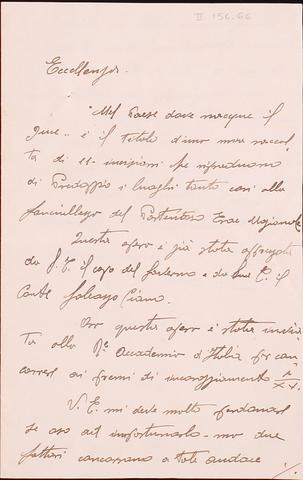 II 156.66
Eccellenza.
"Nel Paese dove nacque il
Duce" è il titolo d'una mia raccol
ta di 12 incisioni che riproducono
di Predappio i luoghi tanto cari alla
fanciullezza del Portentoso Eroe Nazionale
Questa opera è già stata apprezzata
da S. E. il capo del Governo e da S. E. il
Conte Galeazzo Ciano.
Ora questa opera è stata invia
ta alla Re Accademia d'Italia per con
correre ai premi di incoraggiamento
V. E. mi deve molto perdonare
se oso importunarla - ma due
fattori concorrono a tale audace